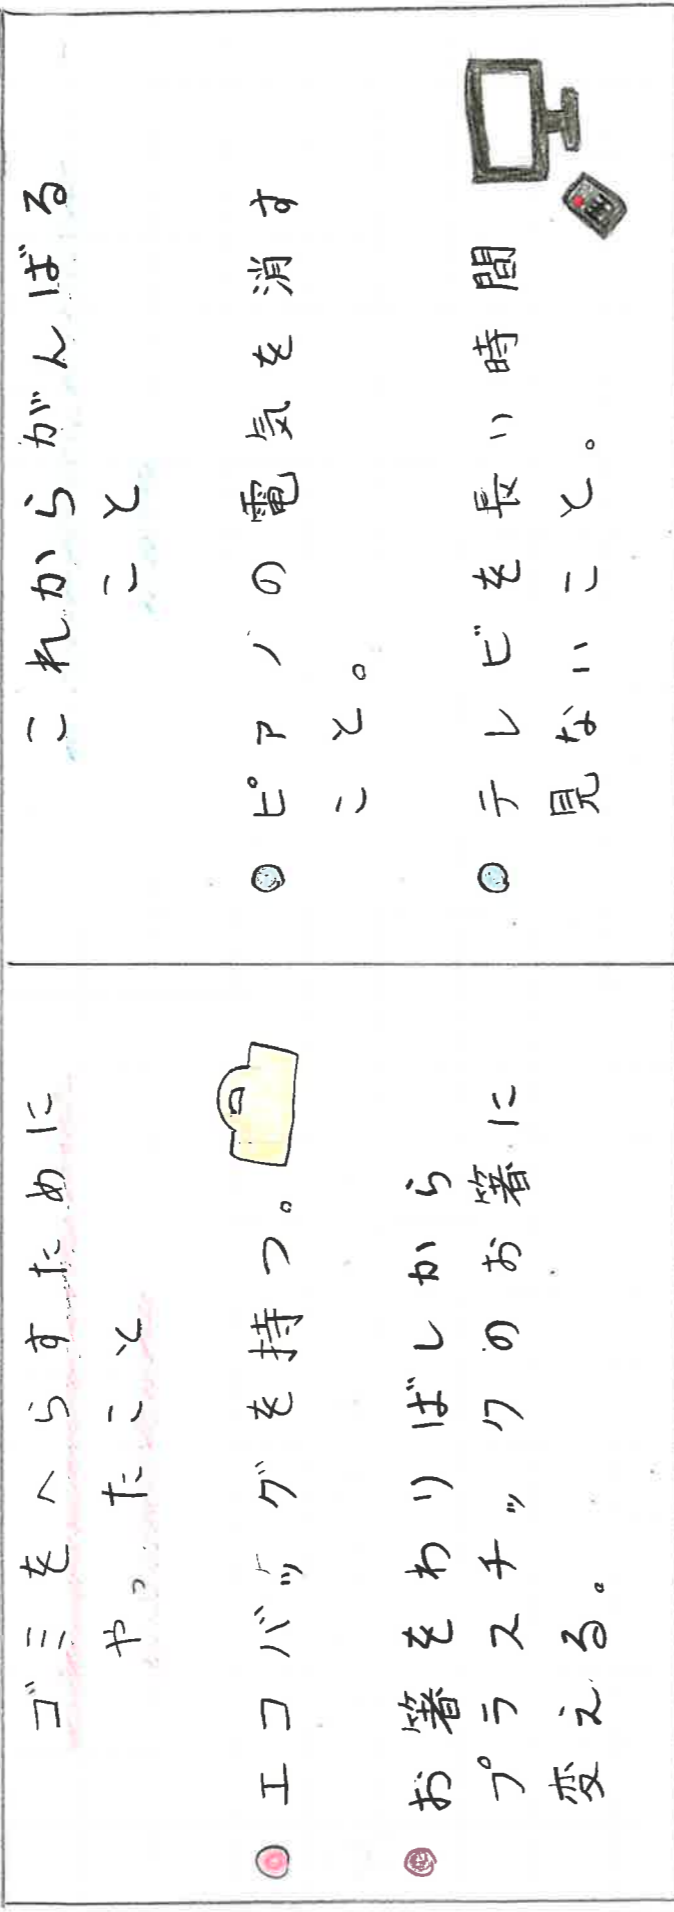 ゴミをへらすために
やったこと
エコバッグを持つ。
お箸をわりばしから
プラスチックのお箸に
変える。
これからがんばる
こと
ピアノの電気を消す
こと。
テレビを長い時間
見ないこと。